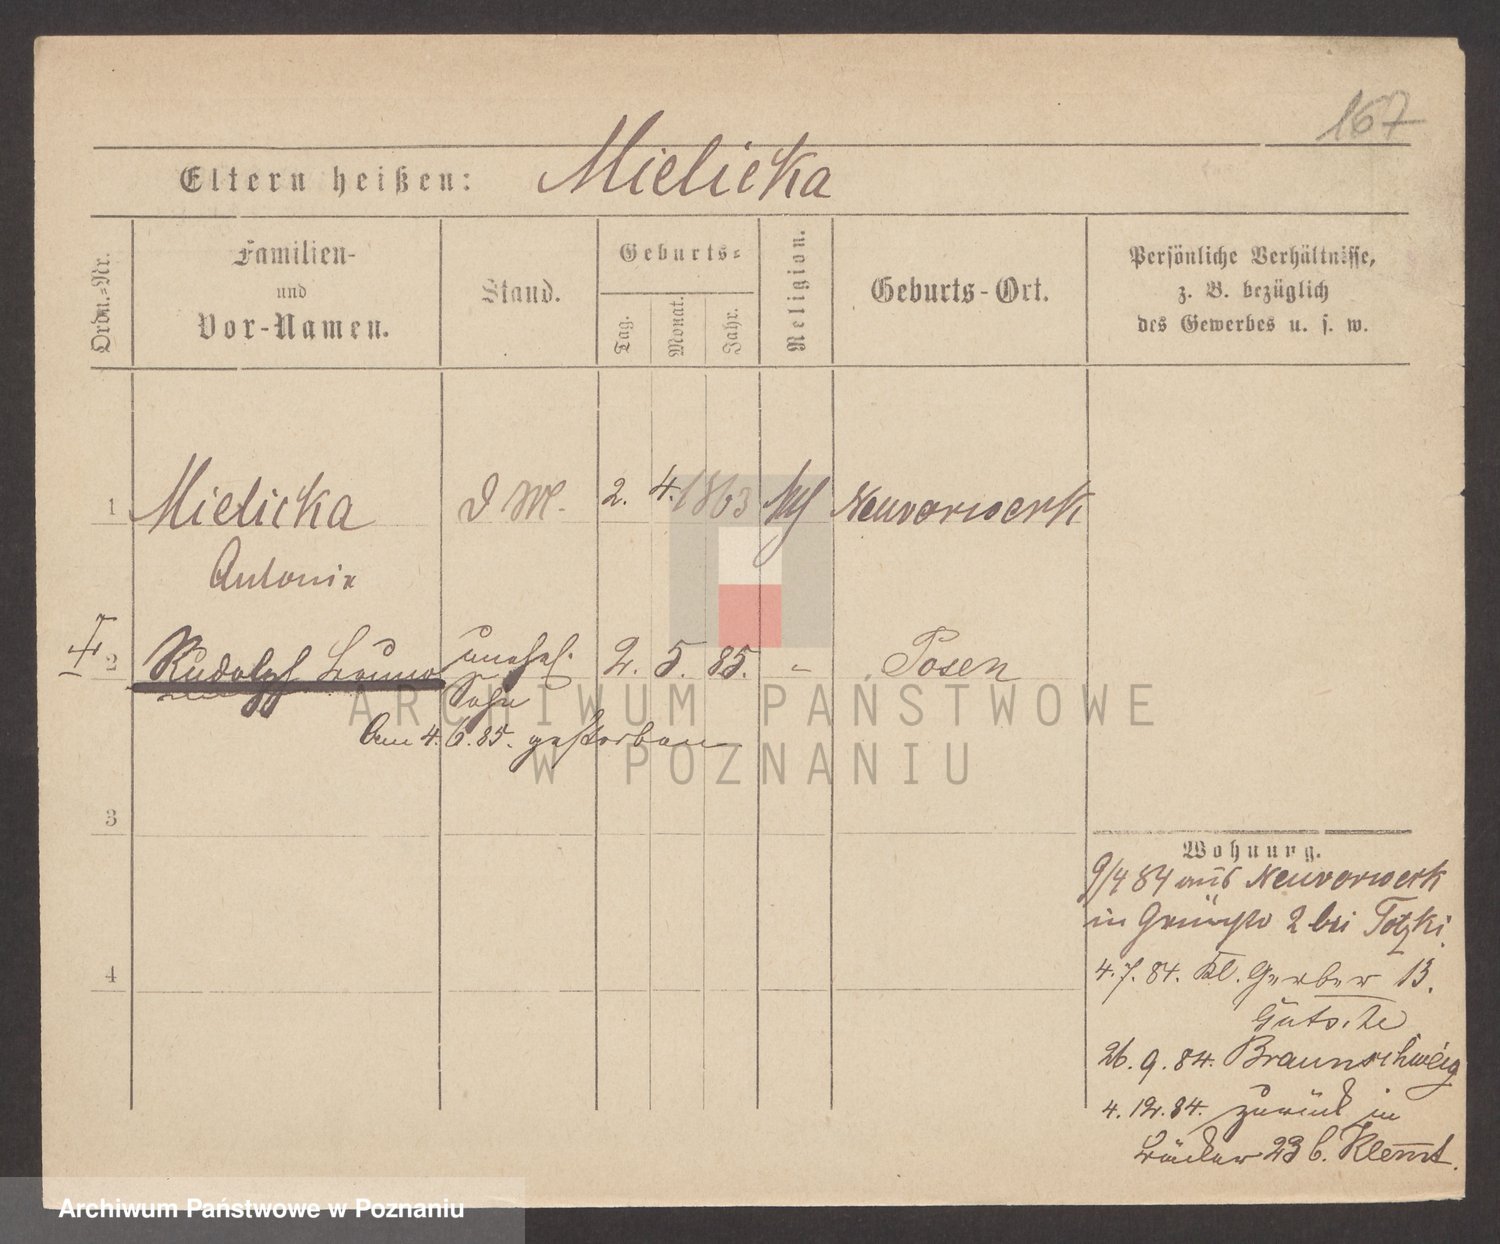 167
Eltern heißen: Mielicka
Ordn.-Nr.
Familien-
und
Vor-Namen.
Stand.
Geburts-
Tag.
Monat.
Jahr.
Religion.
Geburts-Ort.
Persönliche Verhältnisse,
z. B. bezüglich
des Gewerbes u. s. w.
1 Mielicka D M. 2. 4. 1863 kath Neuvorwerk
Antonie
2 Rudolph Bruno unehel. 2. 5. 85. " Posen
Sohn
Am 4. 6. 85. gestorben
ARCHIWUM PAŃSTWOWE
W POZNANIU
3
4
Wohnung.
9/4 84 aus Neuvorwerk
in 2 bei Totzki.
4. 7. 84. Kl. Gerber 13.
Gutsche
26. 9. 84. Braunschweig
4. 12. 84. zurück in
Bäcker 23 b. Klemt.
Archiwum Państwowe w Poznaniu